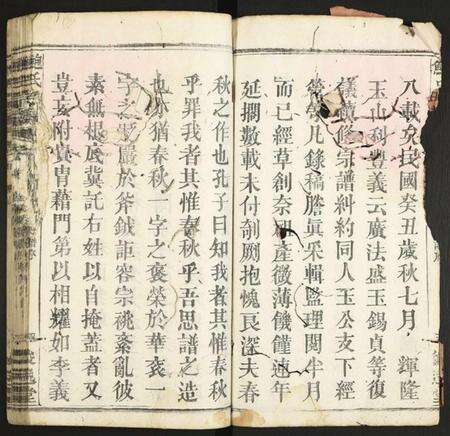 八載矣民國癸丑歲秋七月輝隆
玉山利興義云廣法盛玉錫貞等復
議眞修宗譜糾約同人玉公支下經
營登凡錄稿謄眞采輯監理閱半月
而已經草創奈祖產微薄饑饉連年
延擱數載未付剞劂抱愧良深夫春
秋之作也孔子曰知我者其惟春秋
乎罪我者其惟春秋乎吾思譜之造
也亦猶春秋一字之褒榮於華袞一
字之貶嚴於斧鉞詎容宗祧紊亂彼
素無根底冀託右姓以自掩蓋者又
豈妄附貴胄藉門第以相耀如李義
鮑氏